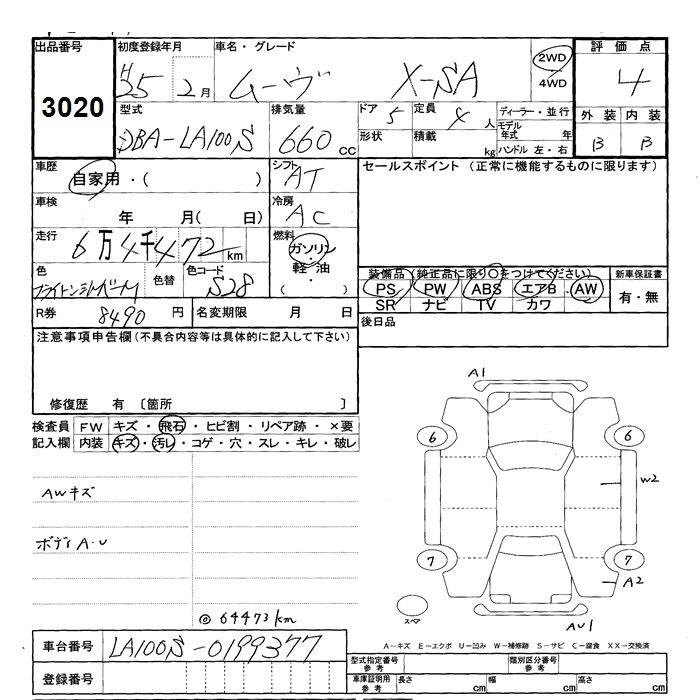 出品番号 初度登録年月 車名・グレード 評価点
3020 H25 2月 ムーヴ X-SA 2WD 4WD 4
型式 排気量 ドア 5 定員 4人 ディーラー・並行 外装 内装
DBA-LA100S 660cc 形状 積載 kg モデル年式 年 B B
ハンドル 左・右
車歴 シフト セールスポイント (正常に機能するものに限ります)
自家用・( ) AT
車検 冷房
年 月( 日) AC
走行 燃料
6万4千472km ガソリン・軽油・( )
色 色替 色コード S28
装備品(純正品に限り○をつけてください) 新車保証書
PS PW ABS エアB AW 有・無
SR ナビ TV カワ
R券 8490円 名変期限 月 日 後日品
注意事項申告欄(不具合内容等は具体的に記入して下さい)
修復歴 有 〔箇所 〕
検査員 FW キズ・飛石・ヒビ割・リペア跡・×要
記入欄 内装 キズ・汚レ・コゲ・穴・スレ・キレ・破レ
A1
6 6
AWキズ
W2
ボディA・U
7 7
A2
◎64473km
スペア
AU1
A-キズ E-エクボ U-凹み W-補修跡 S-サビ C-腐食 XX-交換済
車台番号 LA100S-0199377
型式指定番号 参考 類別区分番号 参考
登録番号
車庫証明用 参考 長さ cm 幅 cm 高さ cm